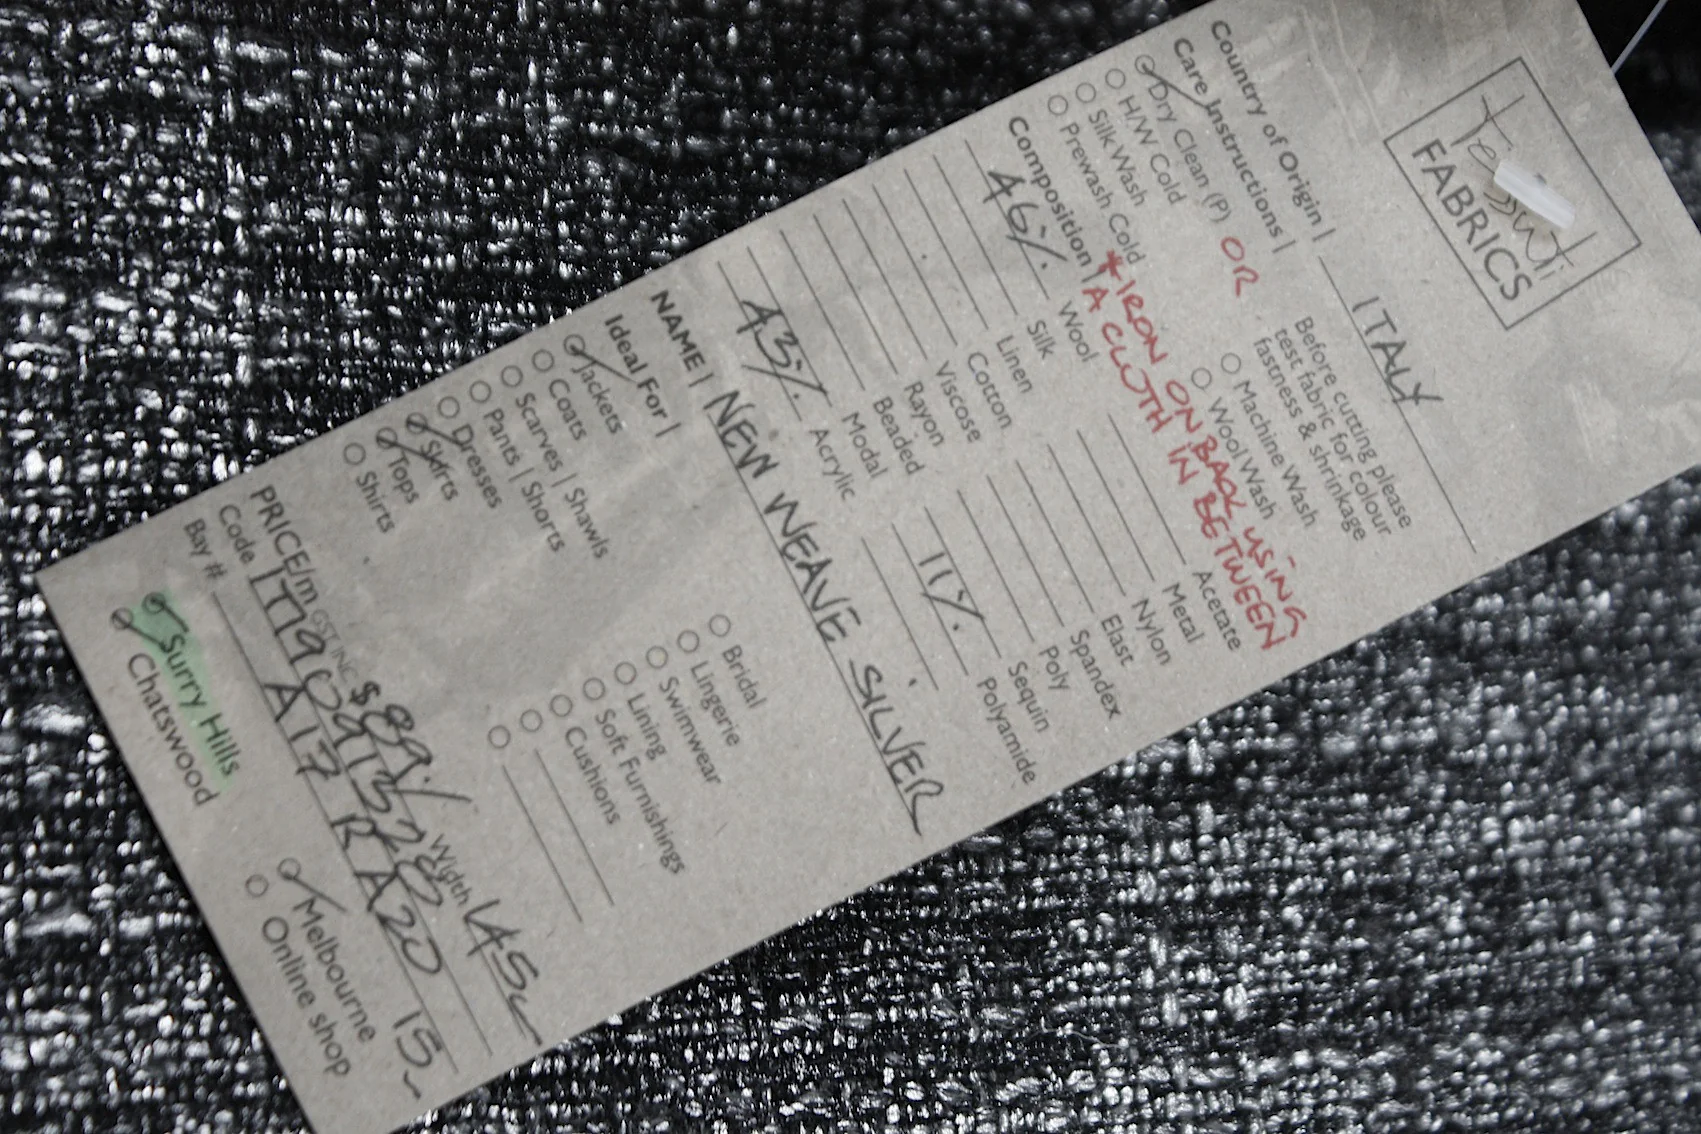 Tessuti
FABRICS
Country of Origin | ITALY
Care Instructions |
Before cutting please
test fabric for colour
fastness & shrinkage
Dry Clean (P) OR
H/W Cold
Silk Wash
Prewash Cold
Machine Wash
Wool Wash
* IRON ON BACK USING
A CLOTH IN BETWEEN
Composition |
46% Wool
Silk
Linen
Cotton
Viscose
Rayon
Beaded
Modal
43% Acrylic
Acetate
Metal
Nylon
Elast
Spandex
Poly
Sequin
11% Polyamide
NAME | NEW WEAVE SILVER
Ideal For |
Jackets
Coats
Scarves | Shawls
Pants | Shorts
Dresses
Skirts
Tops
Shirts
Bridal
Lingerie
Swimwear
Lining
Soft Furnishings
Cushions
PRICE/m GST INC $89./ Width 145
Code
Bay # A17 RA20 15
Surry Hills
Chatswood
Melbourne
Online shop